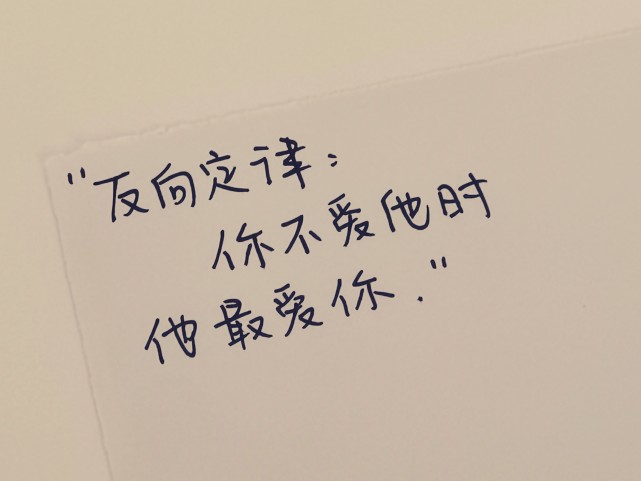 "反向定律：
你不爱他时
他最爱你．"